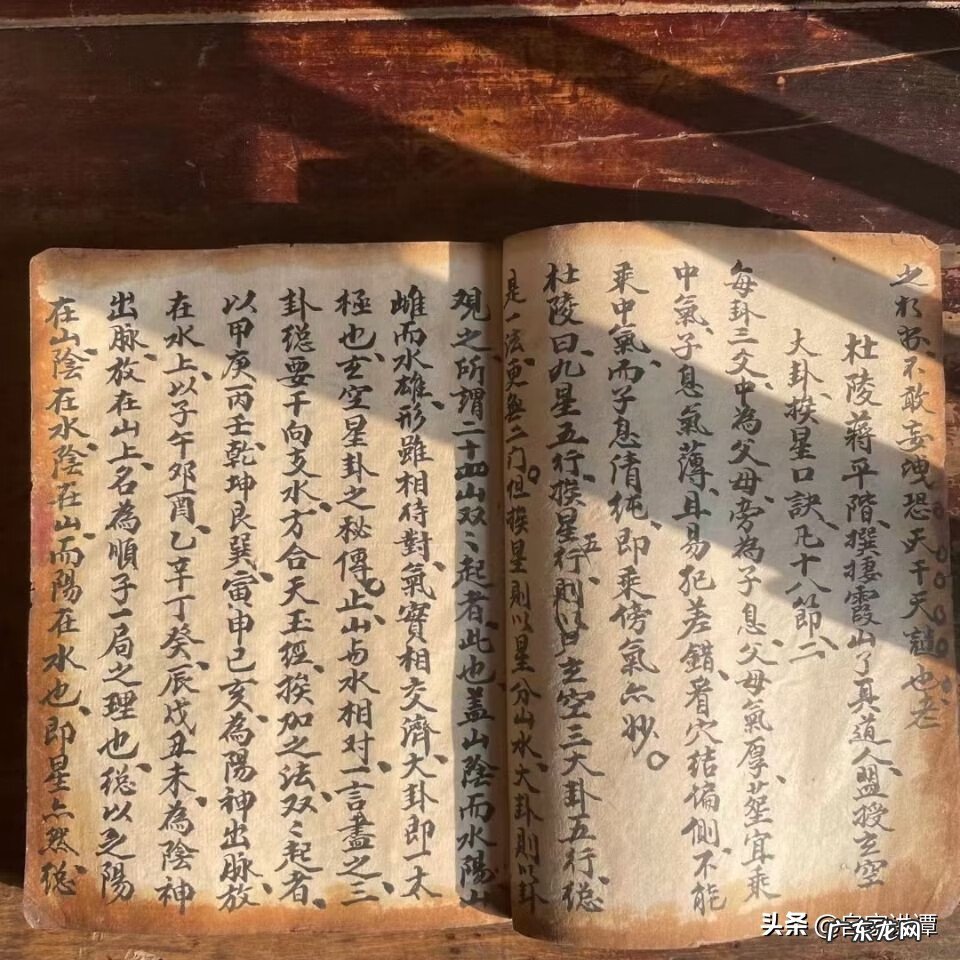 不敢妄洩恐天干天譴也老
杜陵蔣平階撰棲霞山了真道人盟授玄空
大卦挨星口訣凡十八節二
每卦三爻中為父母旁為子息父母氣厚葢宜乘
中氣子息氣薄且易犯差錯看穴結偏側不能
乘中氣而子息清純即乘傍氣亦妙
杜陵曰九星五行挨星五行則曰玄空三大卦五行縂
是一法更無二门但挨星則以星分山水大卦則以卦
观之所謂二十四山双々起者此也盖山陰而水陽山
雌而水雄形雖相待對氣實相交濟大卦即一太
極也玄空星卦之秘傳止山与水相对一言盡之三
卦縂要干向支水方合天玉經挨加之法双々起者
以甲庚丙壬乾坤艮巽寅申巳亥為陽神出脉放
在水上以子午邜酉乙辛丁癸辰戌丑未為陰神
出脉放在山上名為順子一局之理也縂以之陽
在山陰在水陰在山而陽在水也即星亦然縂
头条 @名家讲谭
广东龙网